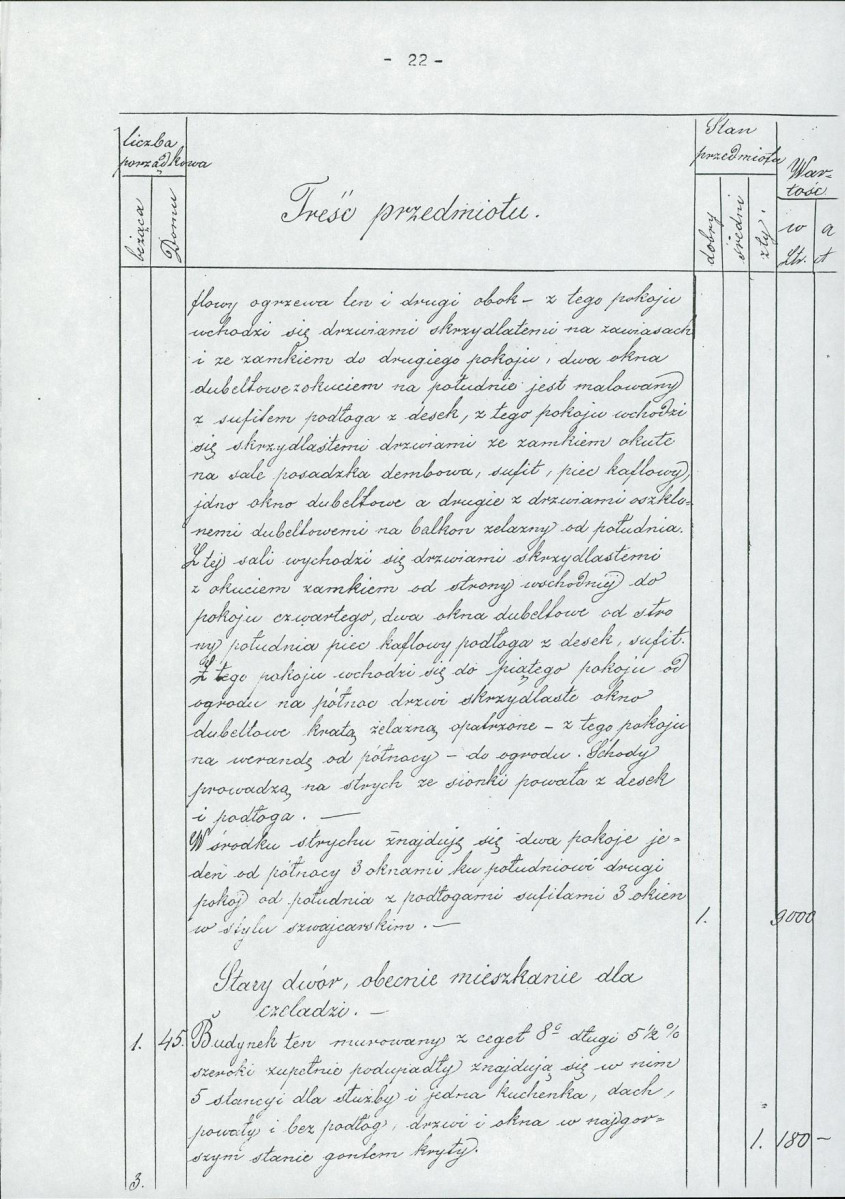 - 22 -
liczba
porządkowa
bieżąca
Domu
Treść przedmiotu.
Stan
przedmiotu
dobry
średni
zły.
War-
tość
w a
Złr. ct
flowy ogrzewa ten i drugi obok – z tego pokoju
wchodzi się drzwiami skrzydlatemi na zawiasach
i ze zamkiem do drugiego pokoju, dwa okna
dubeltowe z okuciem na południe jest malowany
z sufitem podłoga z desek, z tego pokoju wchodzi
się skrzydlastemi drzwiami ze zamkiem okute
na sale posadzka dembowa, sufit, piec kaflowy,
jdno okno dubeltowe a drugie z drzwiami oszklo-
nemi dubeltowemi na balkon zelazny od południa.
Z tej sali wychodzi się drzwiami skrzydlastemi
z okuciem zamkiem od strony wschodniej do
pokoju czwartego, dwa okna dubeltowe od stro
ny południa piec kaflowy podłoga z desek, sufit.
Z tego pokoju wchodzi się do piątego pokoju od
ogrodu na północ drzwi skrzydlaste okno
dubeltowe kratą żelazną opatrzone – z tego pokoju
na werandę od północy – do ogrodu. Schody
prowadzą na strych ze sionki powała z desek
i podłoga. —
W środku strychu znajduję się dwa pokoje je-
den od północy 3 oknami ku południowi drugi
pokoj od południa z podłogami sufitami 3 okien
w stylu szwajcarskim. — 1. 9000
Stary dwór, obecnie mieszkanie dla
czeladzi. –
1. 45. Budynek ten murowany z cegeł 8° długi 5 1/2 %
szeroki zupełnie podupadły znajdują się w nim
5 stancyi dla służby i jedna kuchenka, dach,
powały i bez podłóg, drzwi i okna w najgor-
szym stanie gontem kryty. 1. 180 –
3.